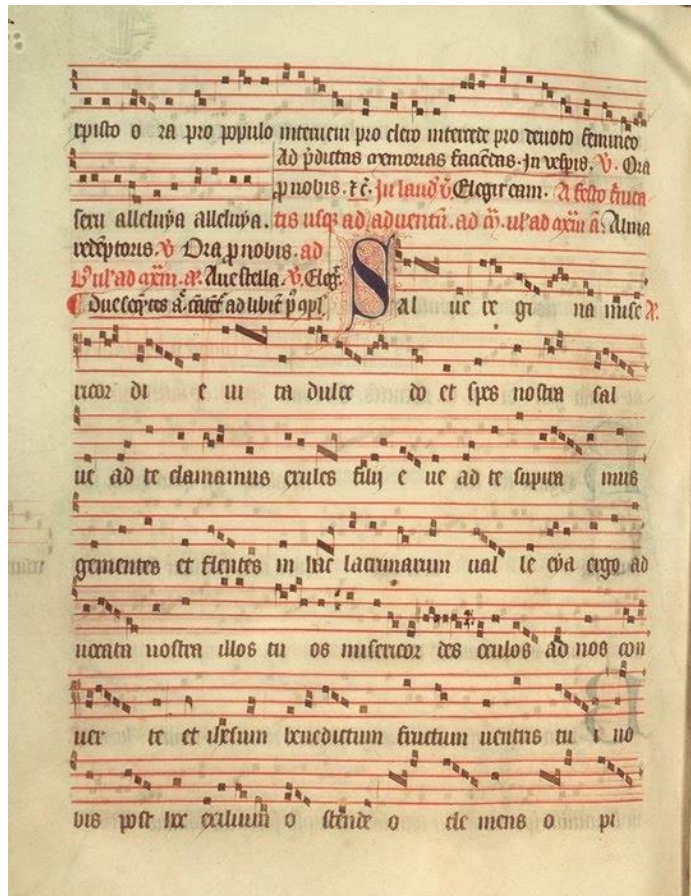 xpisto o ra pro populo interueni pro clero intercede pro deuoto femineo
Ad p̄dictas memorias faciēdas. In vesp̄is. V. Ora
p nobis. ⁊c̄. In laud̄ v̄ Elegit eam. A festo
sexu alleluya alleluya. tis usq̨ ad aduentū. ad Alma
redēptoris. V Ora p nobis. ad
Aue stella. V. Eleḡ.
ad libitū
Sal ue re gi na mise
ricor di e ui ta dulce do et spes nostra sal
ue ad te clamamus exules filij e ue ad te suspira mus
gementes et flentes in hac lacrimarum ual le eya ergo ad
uocata nostra illos tu os misericor des oculos ad nos con
uer te et ihesum benedictum fructum uentris tu i no
bis post hoc exilium o stende o cle mens o pi